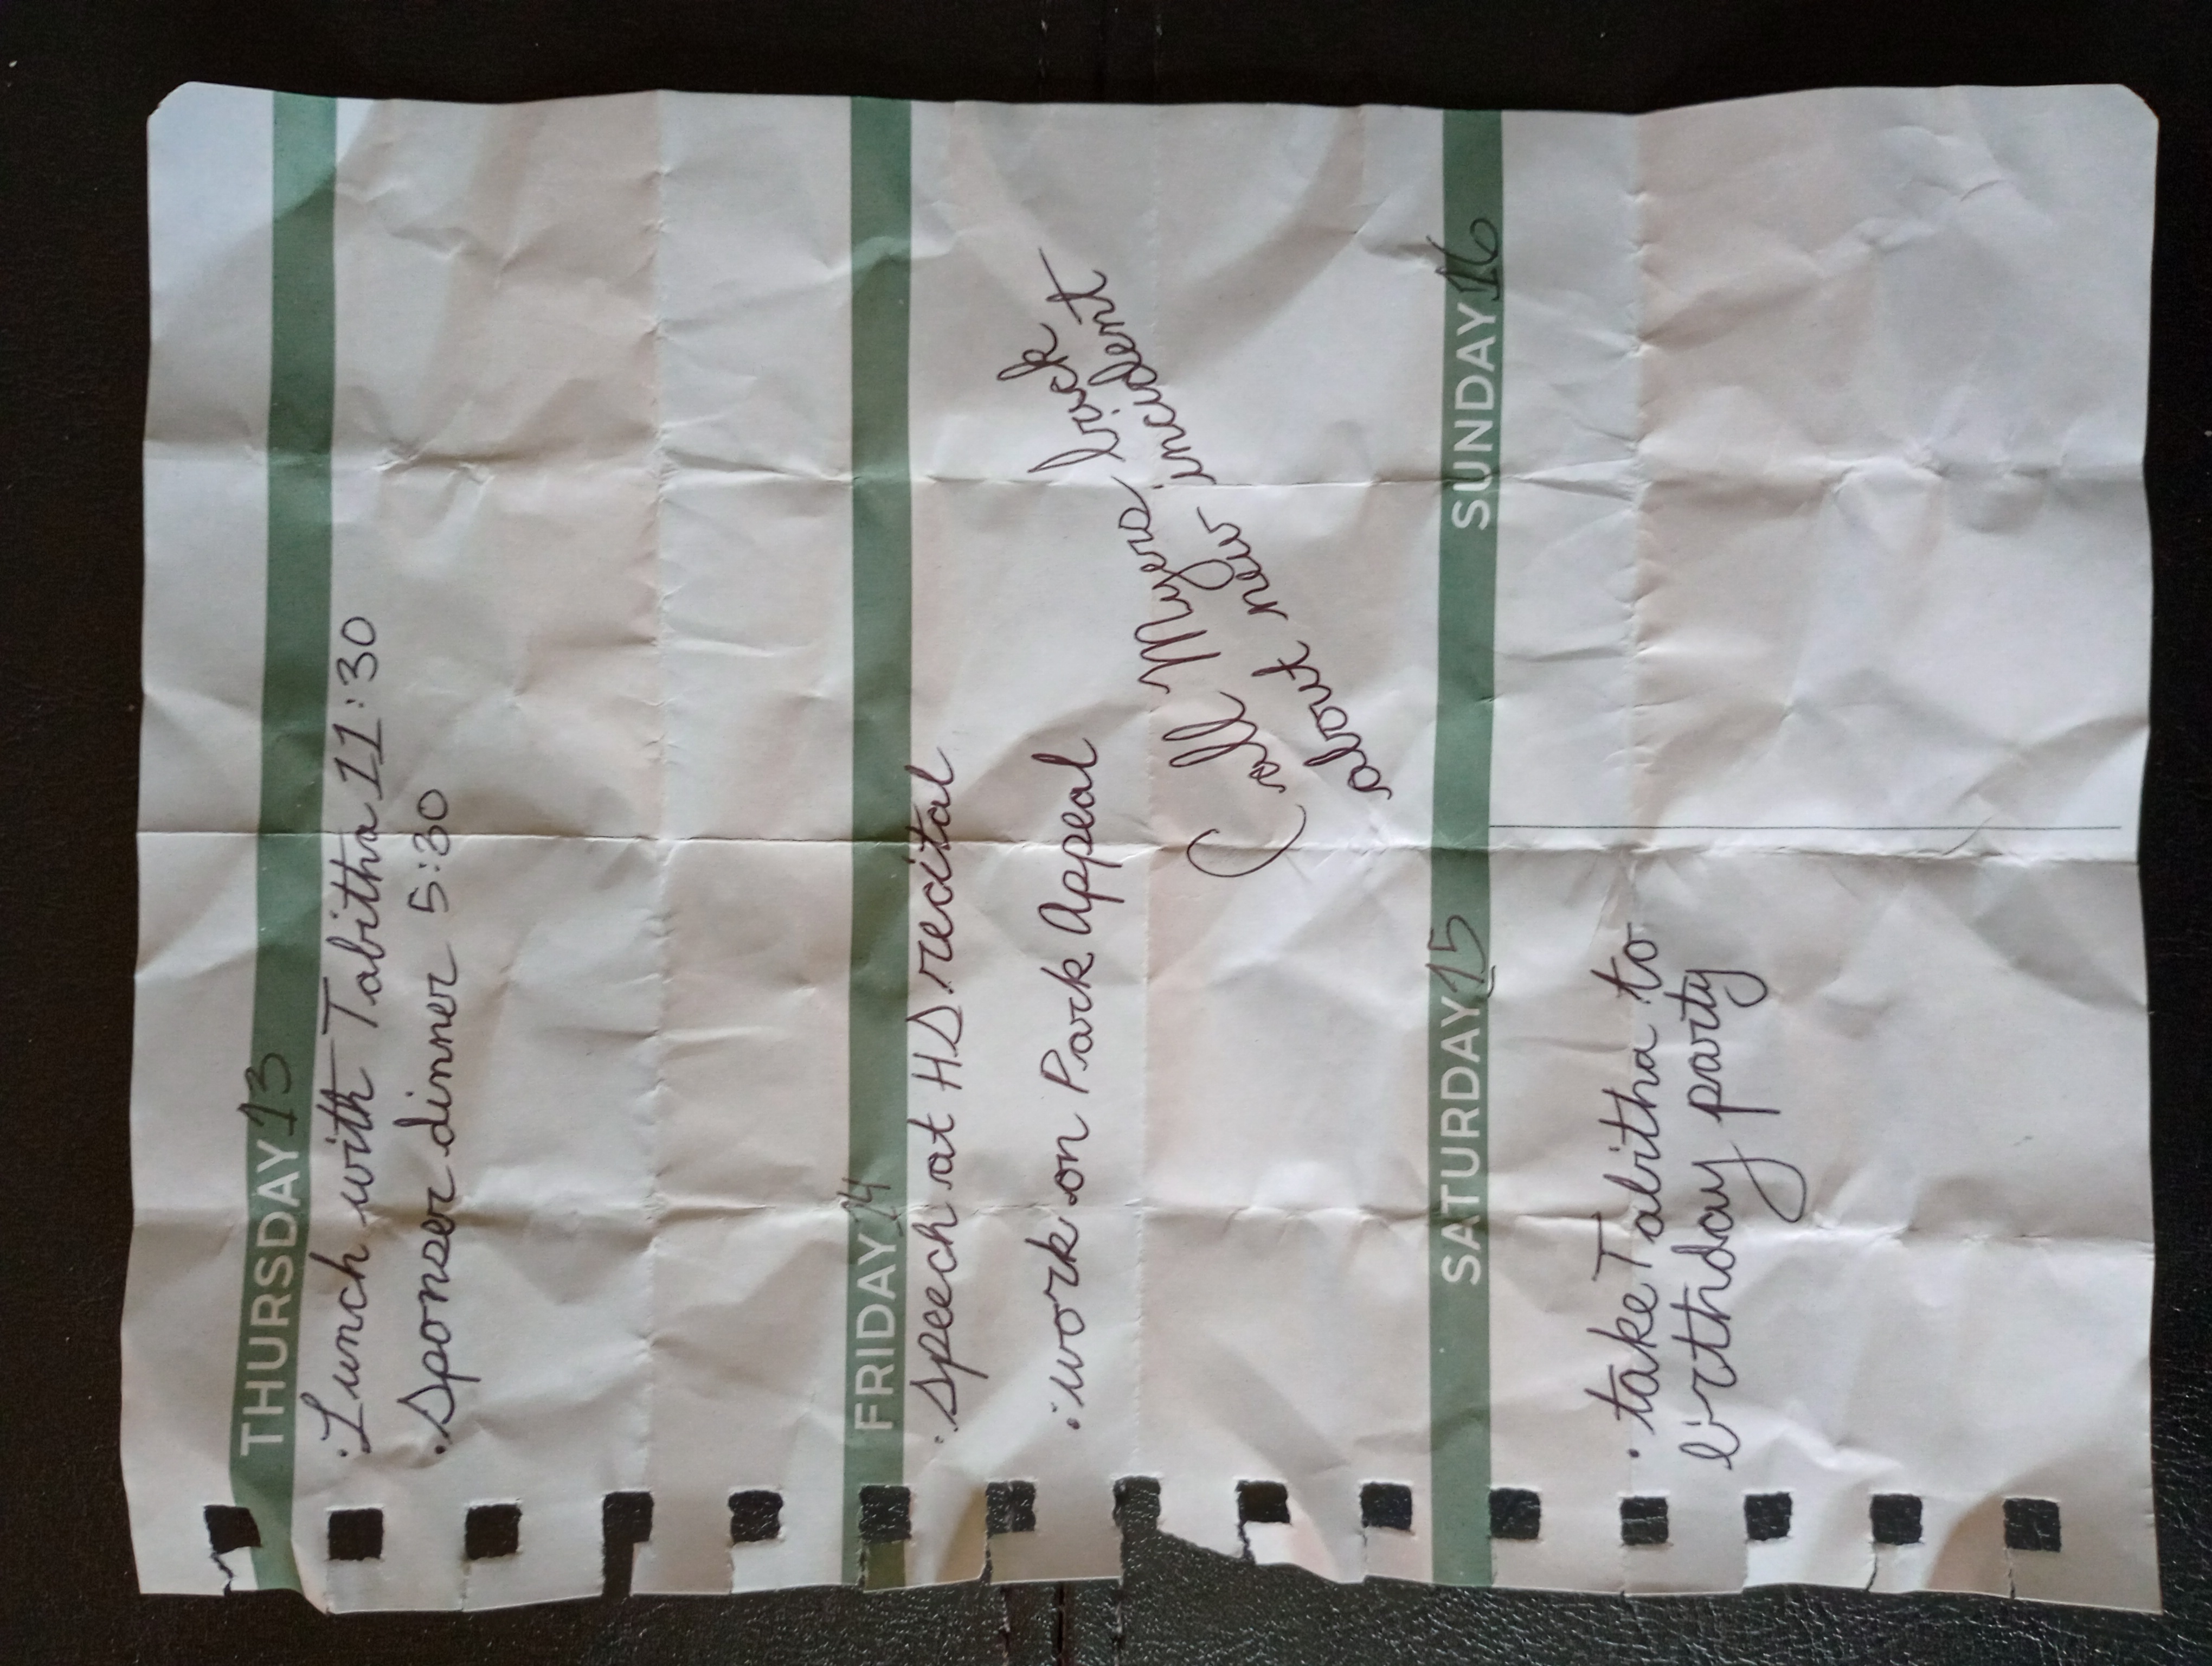 THURSDAY 13
· Lunch with Tabitha 11:30
· Sponser dinner 5:30
FRIDAY 14
· speech at HS recital
· work on Park Appeal
Call Myers back
about new incident
SATURDAY 15
· take Tabitha to
birthday party
SUNDAY 16